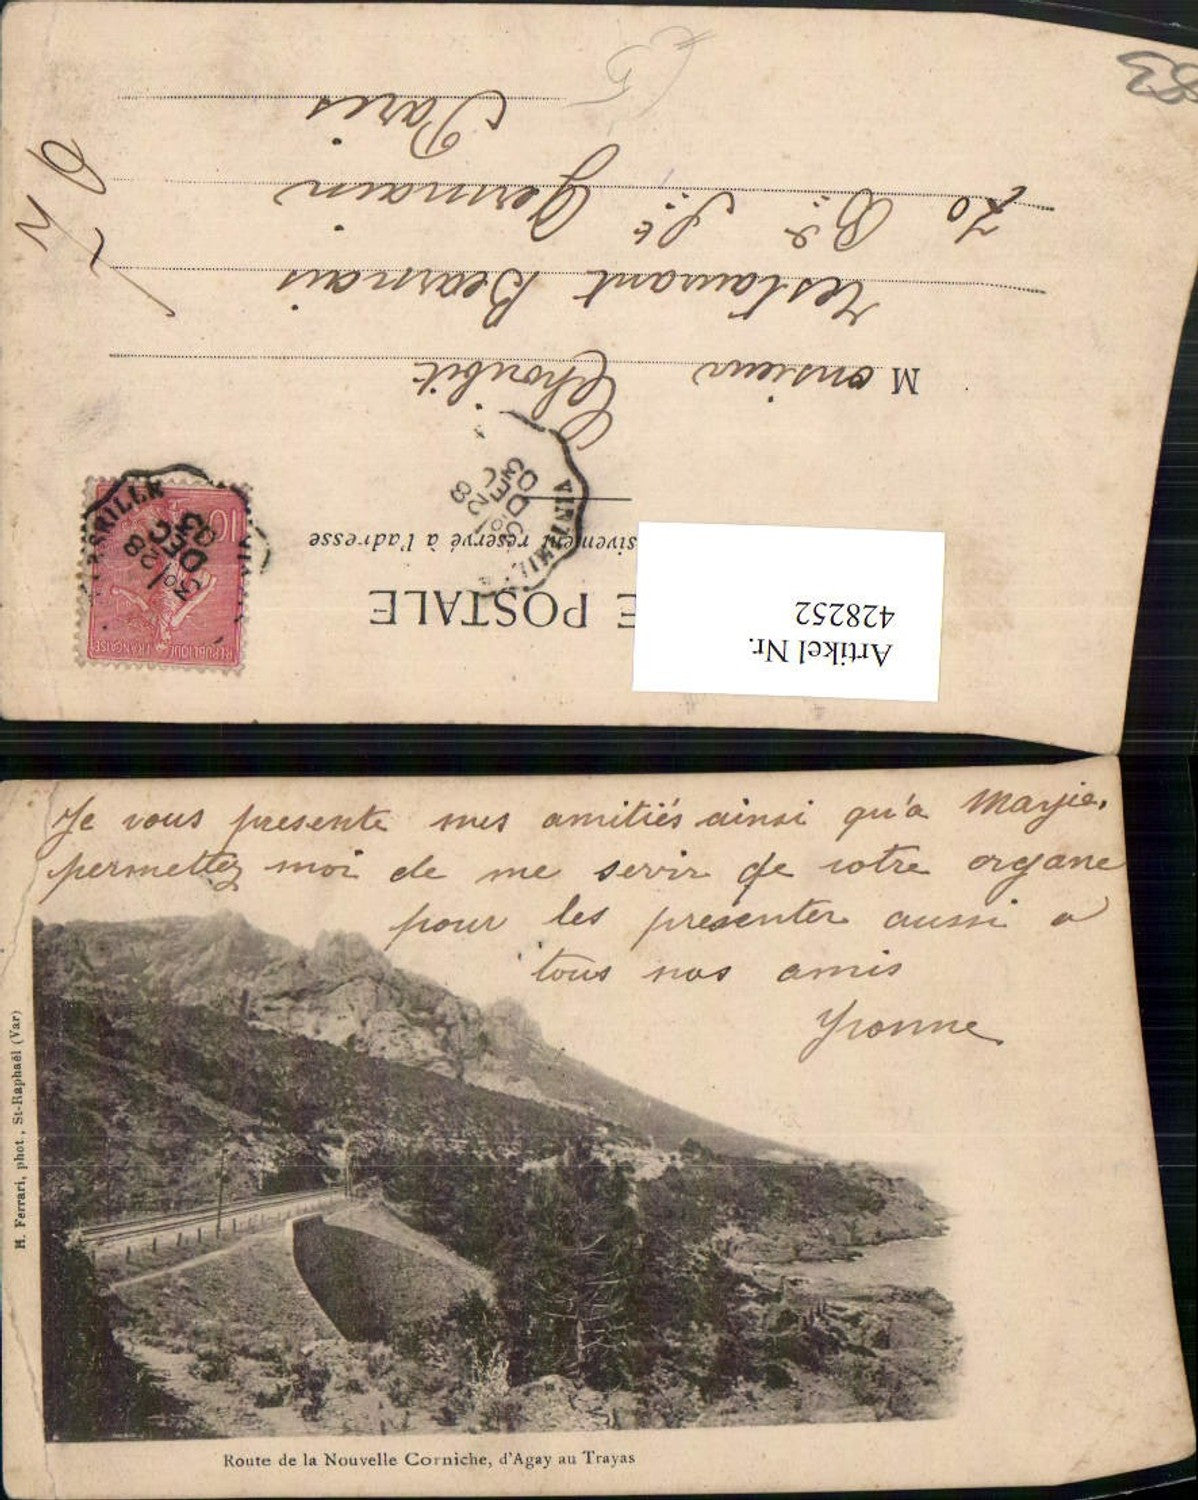 CARTE POSTALE
sivement réservé à l'adresse
Monsieur Choubit
restaurant Bearnais
70 Bd St Germain
Paris
83
RÉPUBLIQUE FRANÇAISE
10
28
DEC
03
28
DEC
03
Artikel Nr.
428252
Je vous presente mes amitiés ainsi qu'a
permettez moi de me servir de votre organe
pour les presenter aussi a
tous nos amis
Yvonne
H. Ferrari, phot., St-Raphaël (Var)
Route de la Nouvelle Corniche, d'Agay au Trayas